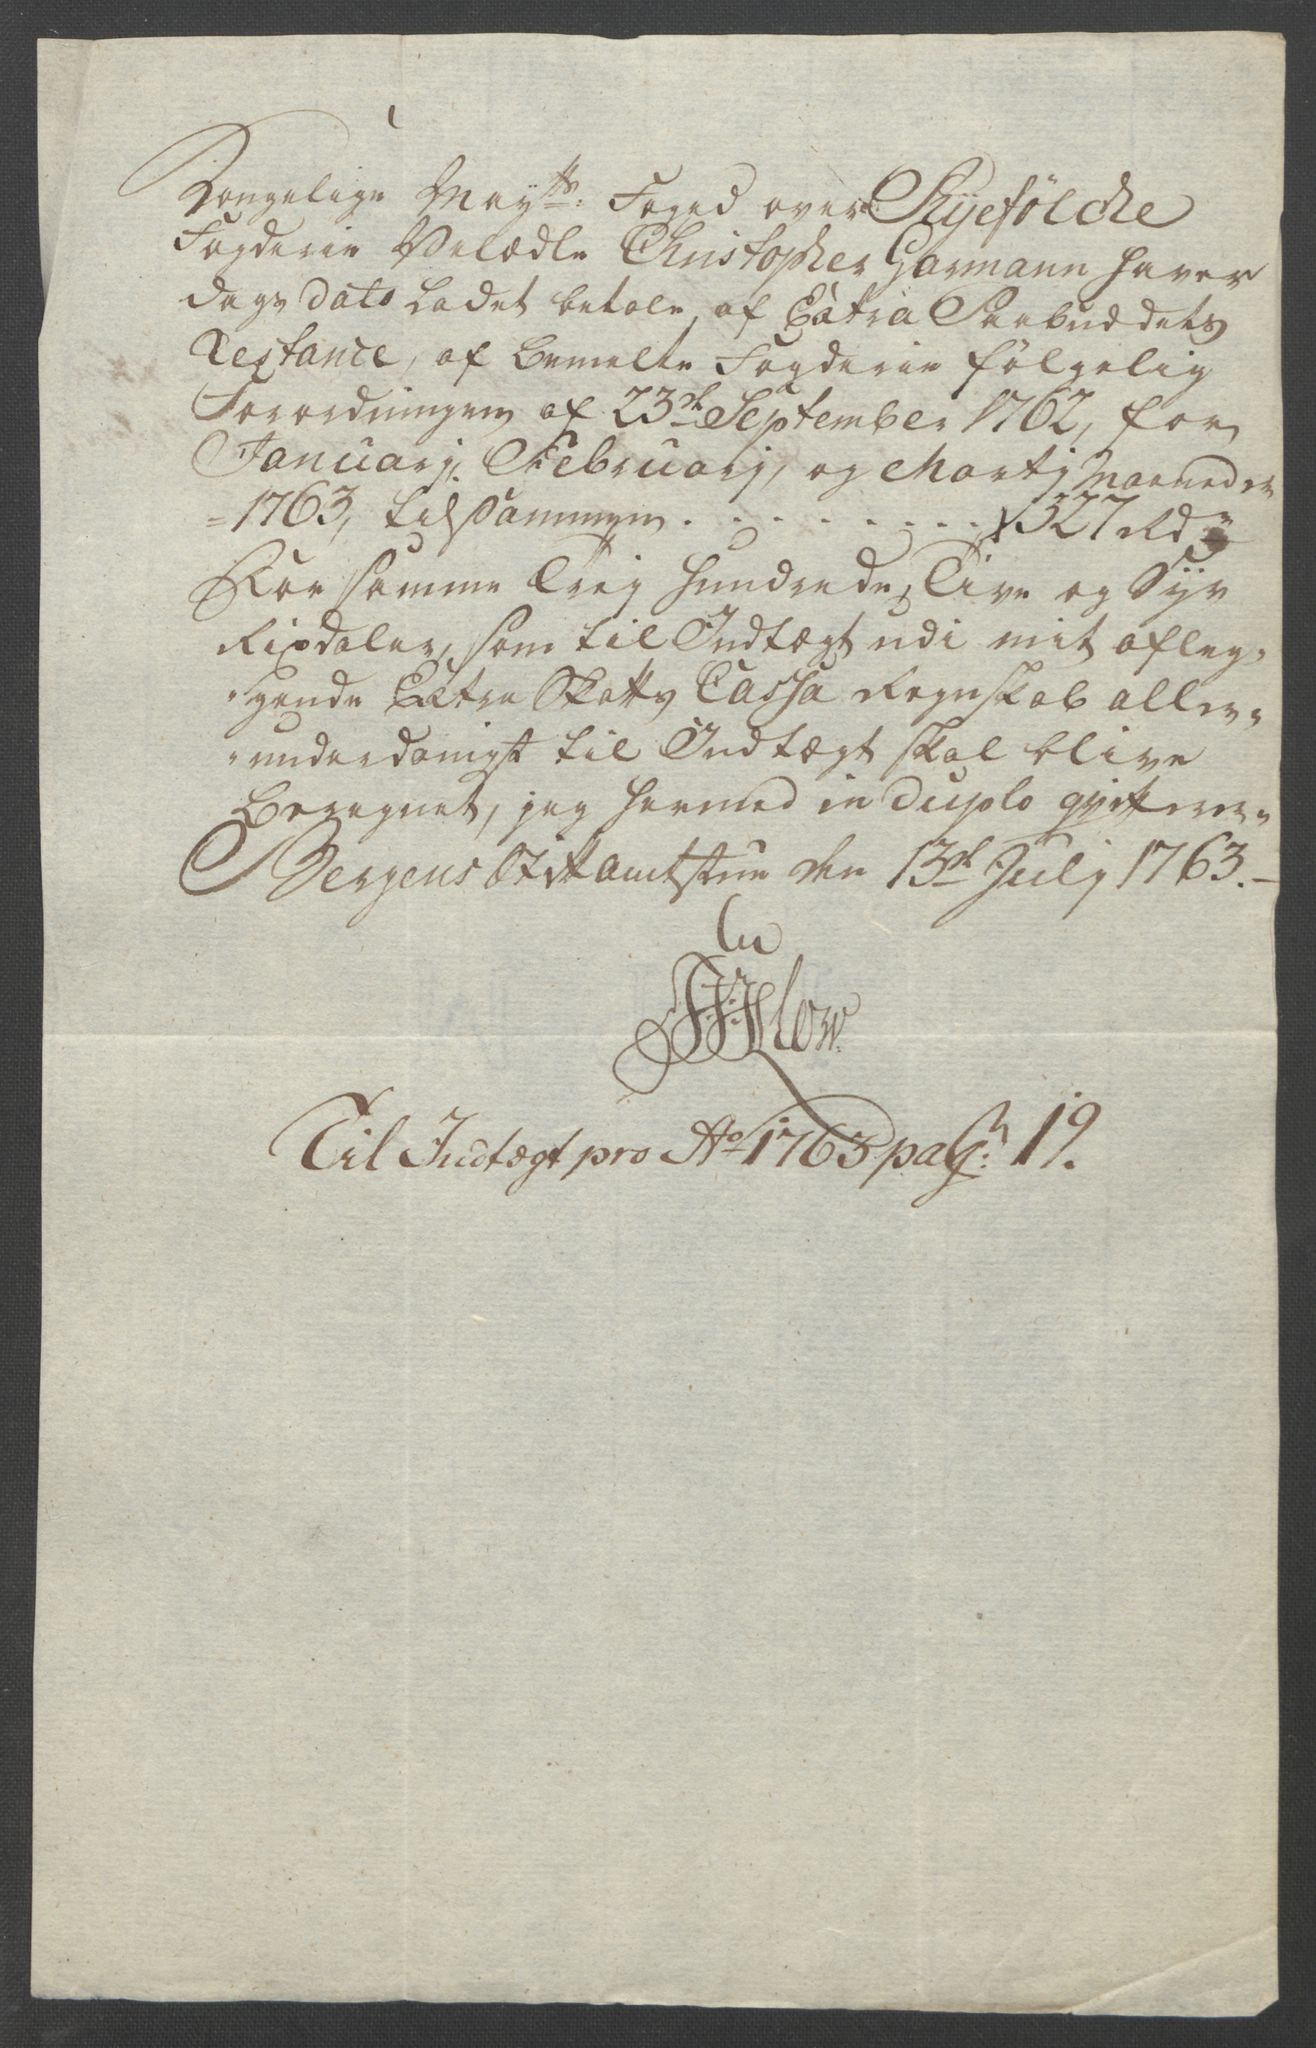 Kongelige Mayts: Foged over Ryefölche
Fogderie Velædle Christopher Garmann haver
dags dato Ladet betale, af Extra Paabuddets
Restance, af bemelte Fogderie følgelig
Forordningen af 23de September 1762, for
Januarj, Februarj, og Martj Maaneder
=1763, tilsammen . . . . . . . . . 327 Rd
For samme Treg Hundrede, Tive og Syv
Rixdaler, som til Indtægt udi mit afleg„
„gende Extra Skatts Cassa Regnskab aller„
„underdanigst til Indtægt skal blive
Beregnet, jeg hermed in duplo qvitterer„
Bergens Stiftamtstue den 13de Julj 1763.

Til Indtægt pro Ao 1763 pag: 19.